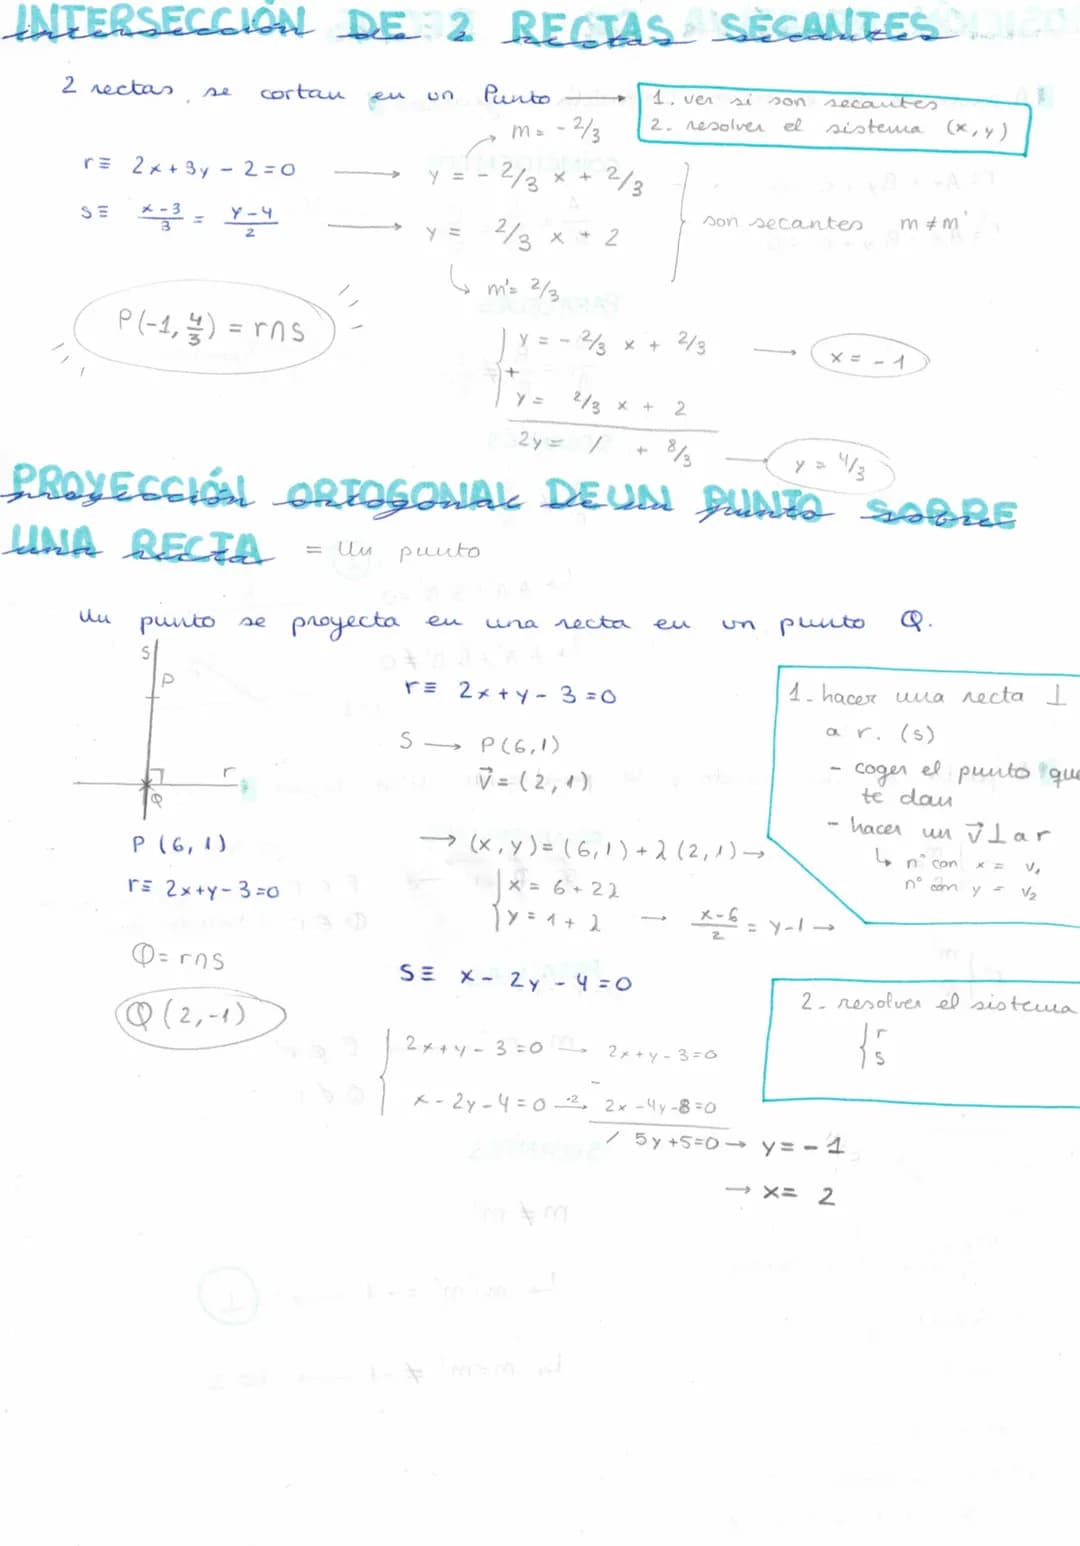 INTERSECCIÓN DE 2 RECTAS SECANTES
intersección de 2 rectas secantes
2 rectas se cortan en un Punto →
1. ver si son secantes
2. resolver el sistema (x, y)
m = - 2/3
r ≡ 2x + 3y - 2 = 0 → y = - 2/3 x + 2/3
s ≡ x-3/3 = y-4/2 → y = 2/3 x + 2
son secantes m ≠ m'
↳ m' = 2/3
P(-1, 4/3) = r∩s
y = - 2/3 x + 2/3 → x = - 1
+
y = 2/3 x + 2
2y = / + 8/3 → y = 4/3
PROYECCIÓN ORTOGONAL DE UN PUNTO SOBRE
proyección ortogonal de un punto sobre
UNA RECTA = Un punto
una recta
Un punto se proyecta en una recta en un punto Q.
s
P
r
Q
P (6, 1)
r ≡ 2x+y-3=0
Q = r∩s
Q (2,-1)
r ≡ 2x + y - 3 = 0
S → P(6,1)
v⃗ = (2, 1)
→ (x, y) = (6,1) + λ (2,1) →
x = 6 + 2λ
y = 1 + λ → x-6/2 = y-1 →
S ≡ x - 2y - 4 = 0
2x + y - 3 = 0 → 2x + y - 3 = 0
-
x - 2y - 4 = 0 ·2→ 2x - 4y - 8 = 0
/ 5y + 5 = 0 → y = - 1
→ x = 2
1- hacer una recta ⊥
a r. (s)
- coger el punto que
te dan
- hacer un v⃗ ⊥ a r
↳ nº con x = v₁
nº con y = v₂
2- resolver el sistema
r
s